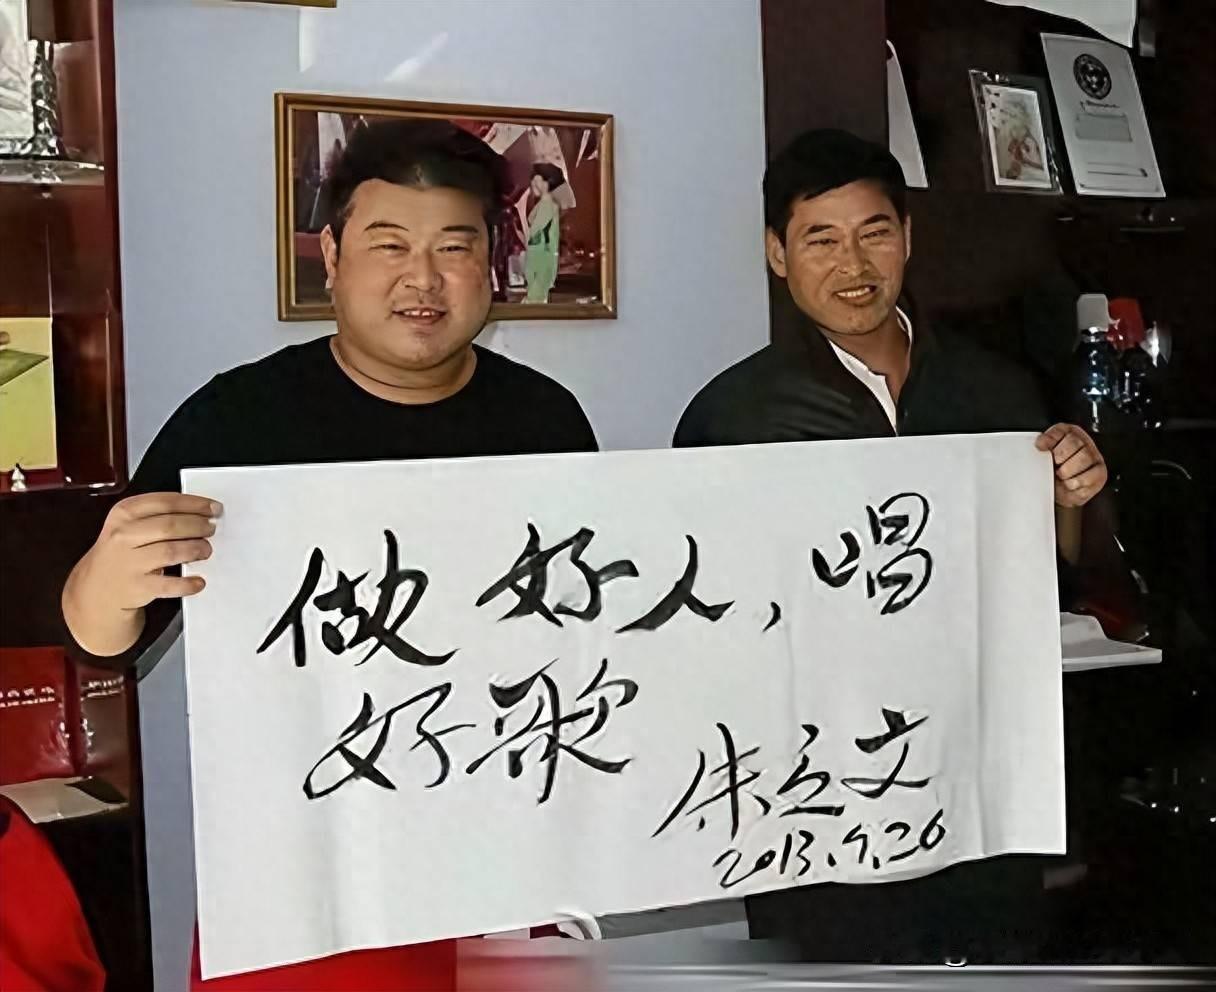 做好人，唱
好歌
朱之文
2013.9.26